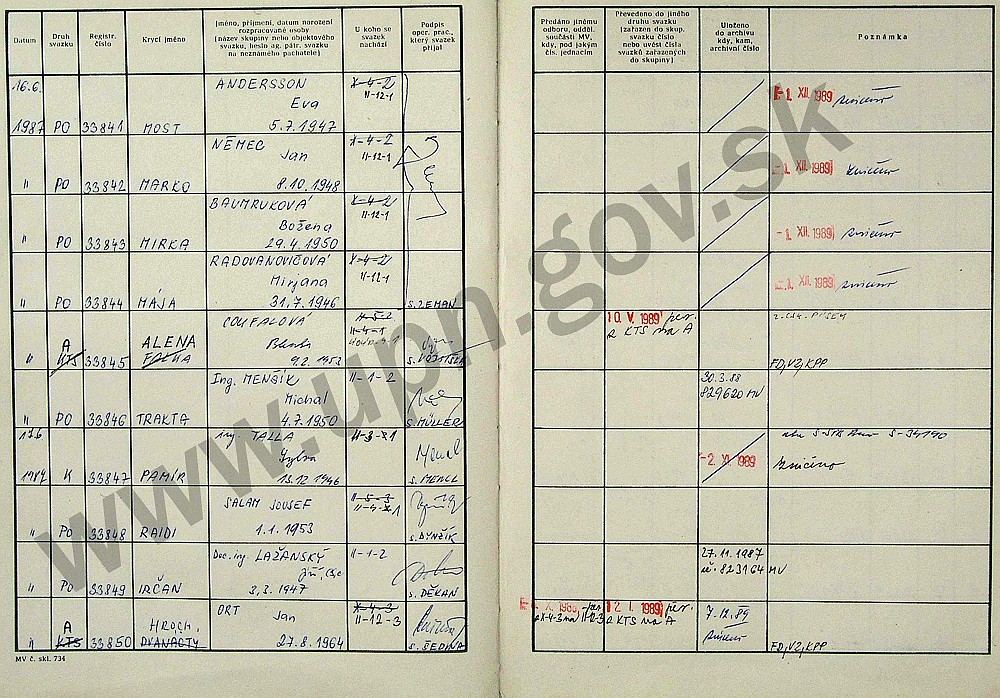 Datum
Druh
svazku
Registr.
číslo
Krycí jméno
Jméno, příjmení, datum narození
rozpracované osoby
(název skupiny nebo objektového
svazku, heslo ag. pátr. svazku
na neznámého pachatele)
U koho se
svazek
nachází
Podpis
oper. prac.,
který svazek
přijal
Předáno jinému
odboru, odděl.
součásti MV,
kdy, pod jakým
čís. jednacím
Převedeno do jiného
druhu svazku
(zařazen do skup.
svazku číslo
nebo uvést čísla
svazků zařazených
do skupiny)
Uloženo
do archivu
kdy, kam,
archivní číslo
Poznámka
16.6.
1987 PO 33841 MOST
ANDERSSON
Eva
5.7.1947
X-4-2
II-12-1
-1. XII. 1989
" PO 33842 MARKO
NĚMEC
Jan
8.10.1948
X-4-2
II-12-1
-1. XII. 1989
" PO 33843 MIRKA
BAUMRUKOVÁ
Božena
29.4.1950
X-4-2
II-12-1
-1. XII. 1989
" PO 33844 MÁJA
RADOVANOVIČOVÁ
Mirjana
31.7.1946
X-4-2
II-12-1
s. ZEMAN
-1. XII. 1989
A
" KTS 33845
ALENA
COUFALOVÁ
9.2.1953
II-5-2
II-4-1
10. V. 1989
z KTS na A
FD, VZ, KPP
" PO 33846 TRAKTA
Ing. MENŠÍK
Michal
4.7.1950
II-1-2
s. MÜLLER
30.3.88
829620 MV
17.6
1987 K 33847 PAMÍR
ing. TALLA
13.12.1946
II-3-1
s. MENCL
-2. XI. 1989
Zničeno
" PO 33848 RAIDI
SALAM JOUSEF
1.1.1953
II-5-3
" PO 33849 IRČAN
Doc. ing. LAŽANSKÝ
Jiří, CSc
3.3.1947
II-1-2
s. DĚKAN
27.11.1987
823164 MV
A
" KTS 33850
HROCH,
DVANÁCTÝ
ORT Jan
27.8.1964
X-4-3
II-12-3
s. ŠEDINA
z X-4-3 na II-12-3
12. I. 1989
z KTS na A
7.12.89
FD, VZ, KPP
MV č. skl. 734
www.upn.gov.sk